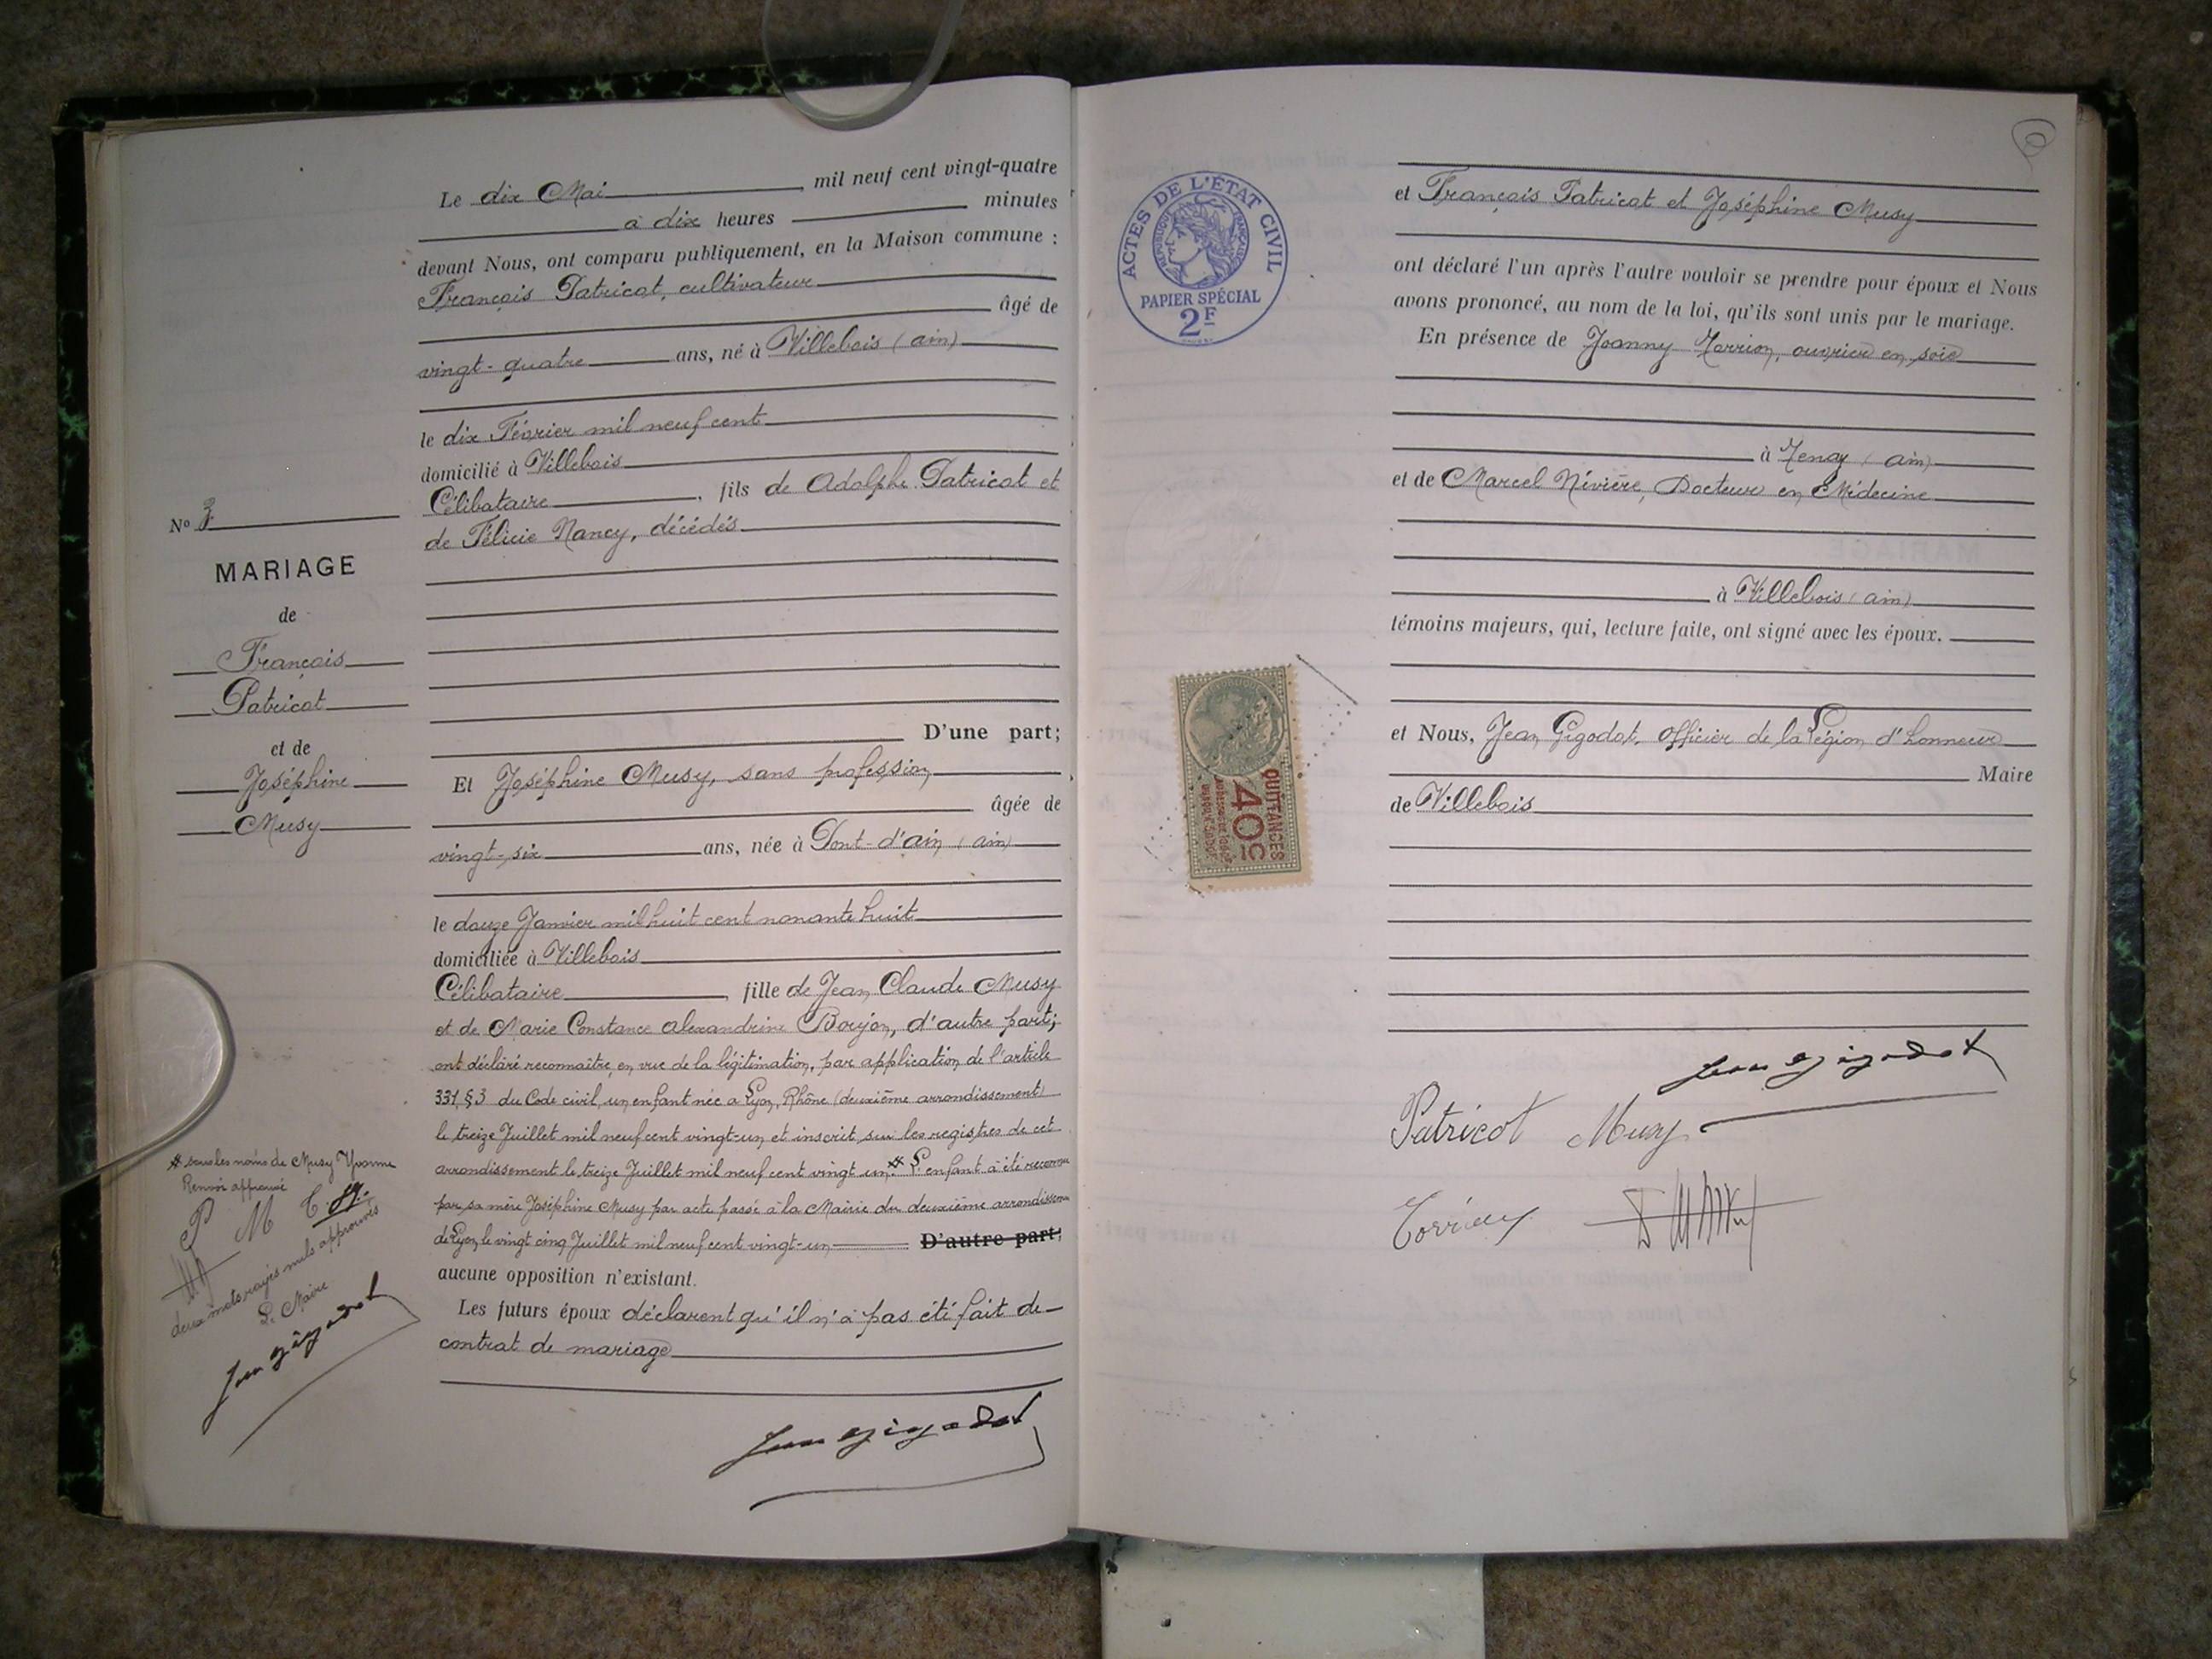 Le dix Mai mil neuf cent vingt-quatre
à dix heures minutes
devant Nous, ont comparu publiquement, en la Maison commune :
François Patricot, cultivateur
âgé de
vingt-quatre ans, né à Villebois (ain)
le dix Février mil neuf cent
domicilié à Villebois
Célibataire, fils de Adolphe Patricot et
de Félicie Nancy, décédés
D'une part;
Et Joséphine Musy, sans profession
âgée de
vingt-six ans, née à Pont-d'ain (ain)
le douze Janvier mil huit cent nonante huit
domiciliée à Villebois
Célibataire, fille de Jean Claude Musy
et de Marie Constance alexandrine Boujon, d'autre part;
ont déclaré reconnaître, en vue de la légitimation, par application de l'article
331, §3 du Code civil, un enfant née a Lyon, Rhône (deuxième arrondissement)
le treize Juillet mil neuf cent vingt-un et inscrit sur les registres de cet
arrondissement le treize Juillet mil neuf cent vingt un # L'enfant a été reconnu
par sa mère Joséphine Musy par acte passé à la Mairie du deuxième arrondissem
de Lyon le vingt cinq Juillet mil neuf cent vingt-un D'autre part;
aucune opposition n'existant.
Les futurs époux déclarent qu'il n'a pas été fait de
contrat de mariage
Jean Gigodot
No 3
MARIAGE
de
François
Patricot
et de
Joséphine
Musy
# sous les noms de Musy Yvonne
Renvoi approuvé
P M T
deux mots rayés nuls approuvés
Le Maire
Jean Gigodot
ACTES DE L'ÉTAT CIVIL
RÉPUBLIQUE FRANÇAISE
PAPIER SPÉCIAL
2F
QUITTANCES
40c
et François Patricot et Joséphine Musy
ont déclaré l'un après l'autre vouloir se prendre pour époux et Nous
avons prononcé, au nom de la loi, qu'ils sont unis par le mariage.
En présence de Joanny Torrion, ouvrier en soie
à Tenay (ain)
et de Marcel Nivière, Docteur en Médecine
à Villebois (ain)
témoins majeurs, qui, lecture faite, ont signé avec les époux.
et Nous, Jean Gigodot, officier de la Légion d'honneur
Maire
de Villebois
Jean Gigodot
Patricot Musy